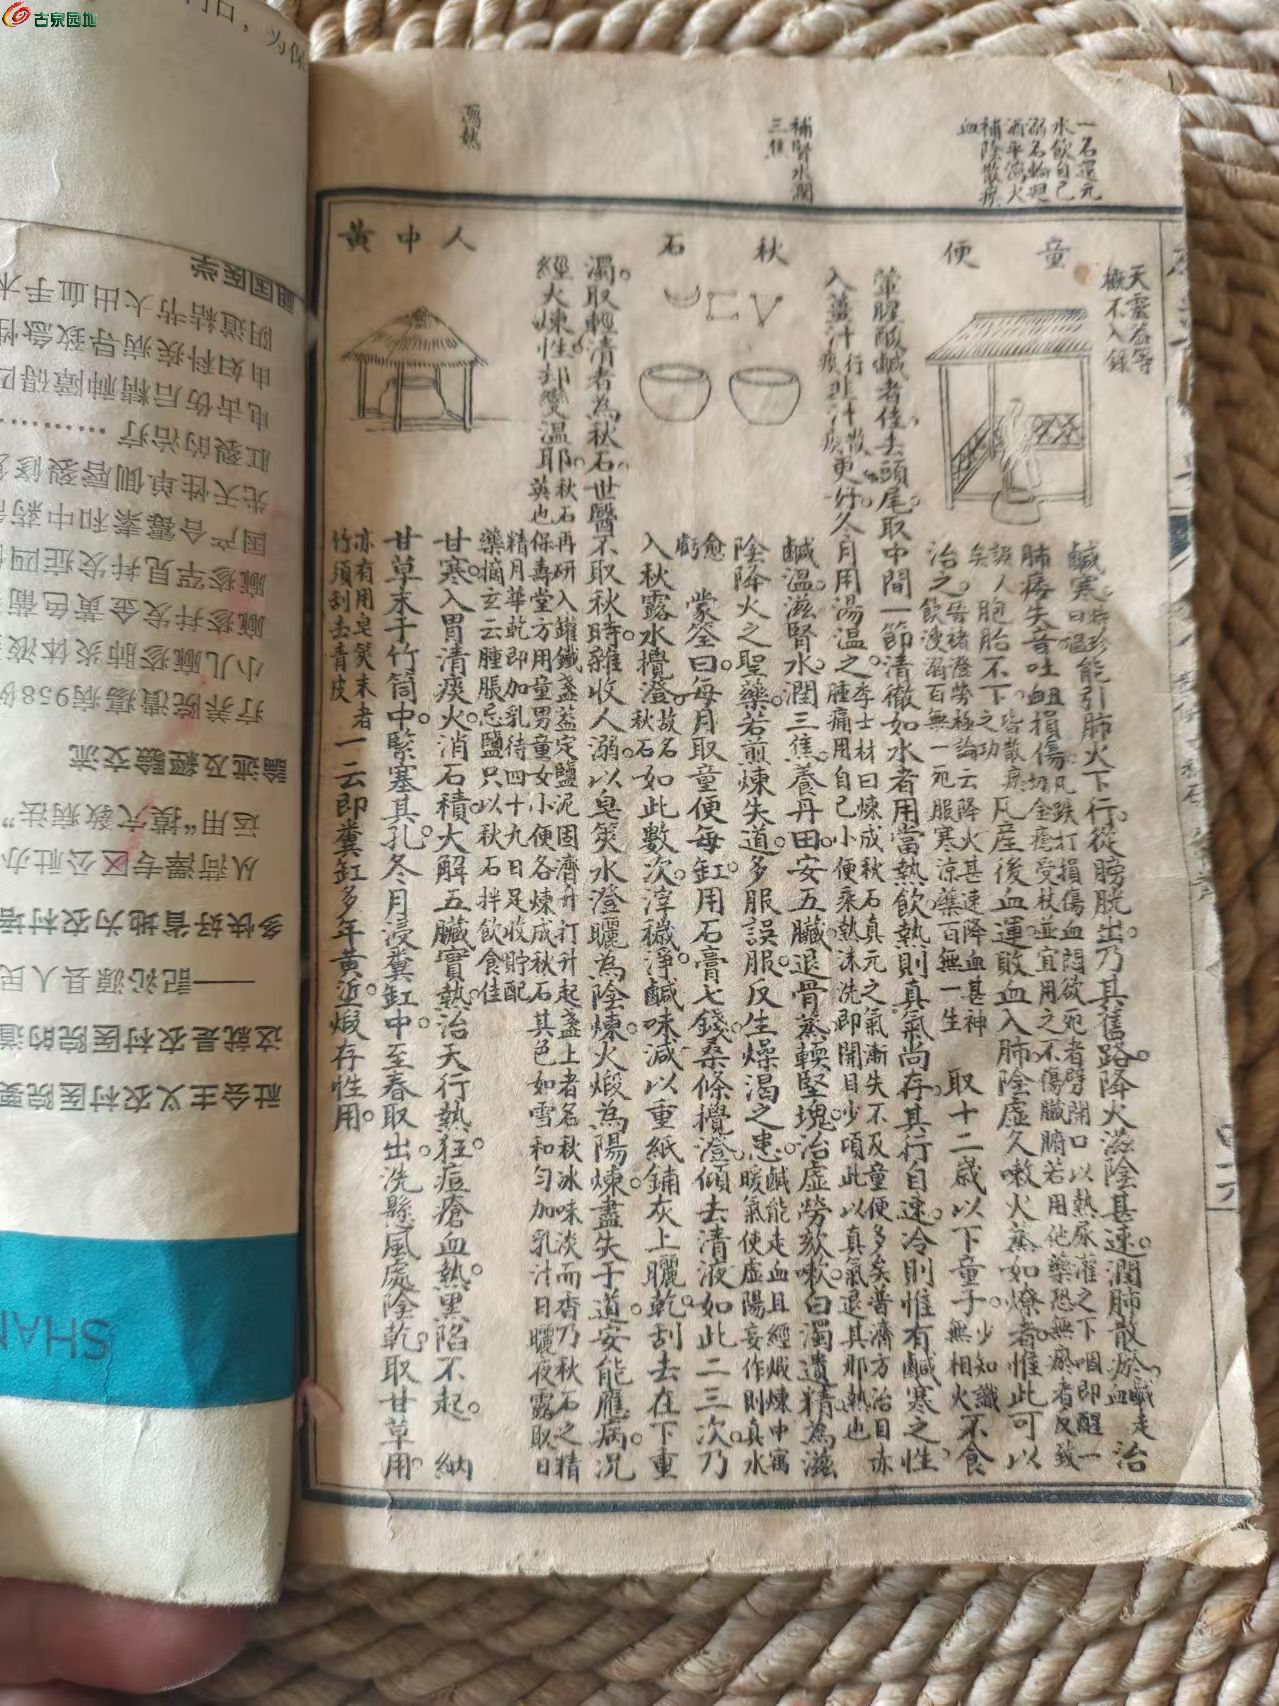 古泉园地
一名還元
水飲自己
溺名輪廻
酒平濟火
補陰散瘀
血
補腎水潤
三焦
瀉熱
童便
秋石
人中黃
天靈蓋等
概不入錄
鹹寒
能引肺火下行從膀胱出乃其舊路降火滋陰甚速潤肺散瘀
治肺痿失音吐衄損傷
凡跌打損傷血悶欲死者擘開口以熱尿灌之下咽即醒一
切金瘡受杖並宜用之不傷臟腑若用他藥恐無瘀者反致
誤人矣
胞胎不下
皆散瘀之功
凡產後血運敗血入肺陰虛久嗽火蒸如燎者惟此可以
治之
晉褚澄勞極論云降火甚速降血甚神
飲溲溺百無一死服寒涼藥百無一生
取十二歲以下童子
少知識
無相火
不食
葷腥酸鹹者佳去頭尾取中間一節清徹如水者用當熱飲熱則真氣尚存其行自速冷則惟有鹹寒之性
入薑汁
行痰
韭汁
散瘀
更好冬月用湯溫之
李士材曰煉成秋石真元之氣漸失不及童便多矣普濟方治目赤
腫痛用自己小便乘熱沫洗即開目少頃此以真氣退其邪熱也
鹹溫滋腎水潤三焦養丹田安五臟退骨蒸輭堅塊治虛勞欬嗽白濁遺精為滋
陰降火之聖藥若煎煉失道多服誤服反生燥渴之患
鹹能走血且經煅煉中寓
暖氣使虛陽妄作則真水
愈虧
蒙筌曰每月取童便每缸用石膏七錢桑條攪澄傾去清液如此二三次乃
入秋露水攪澄
故名秋石
如此數次滓穢淨鹹味減以重紙鋪灰上曬乾刮去在下重
濁取輕清者為秋石世醫不取秋時雜收人溺以皂莢水澄曬為陰煉火煅為陽煉盡失于道安能應病況
經火煉性却變溫耶
秋石
再研入罐鐵盞蓋定鹽泥固濟升打升起盞上者名秋冰味淡而香乃秋石之精
英也
保壽堂方用童男童女小便各煉成秋石其色如雪和勻加乳汁日曬夜露取日
精月華乾即加乳待四十九日足收貯配
藥
瘍玄云腫脹忌鹽只以秋石拌飲食佳
甘寒入胃清痰火消石積大解五臟實熱治天行熱狂痘瘡血熱黑陷不起
納
甘草末于竹筒中緊塞其孔冬月浸糞缸中至春取出洗懸風處陰乾取甘草用
亦有用皂莢末者
竹須刮去青皮
一云即糞缸多年黃近煅存性用
祖国医学
阴道粘节大出血手术
由妇科疾病导致急性
电击伤后精神障碍
肛裂的治疗
先天性单侧唇裂修复
国产合霉素和中药
麻疹罕见并发症四
麻疹并发金黄色葡
小儿麻疹肺炎体液
疗养院溃疡病958例
論述及經驗交流
运用“摸穴救病法”
从菏泽专区公社办
多快好省地为农村培
——記沁源县人民
这就是农村医院的道
社会主义农村医院要
SHAN